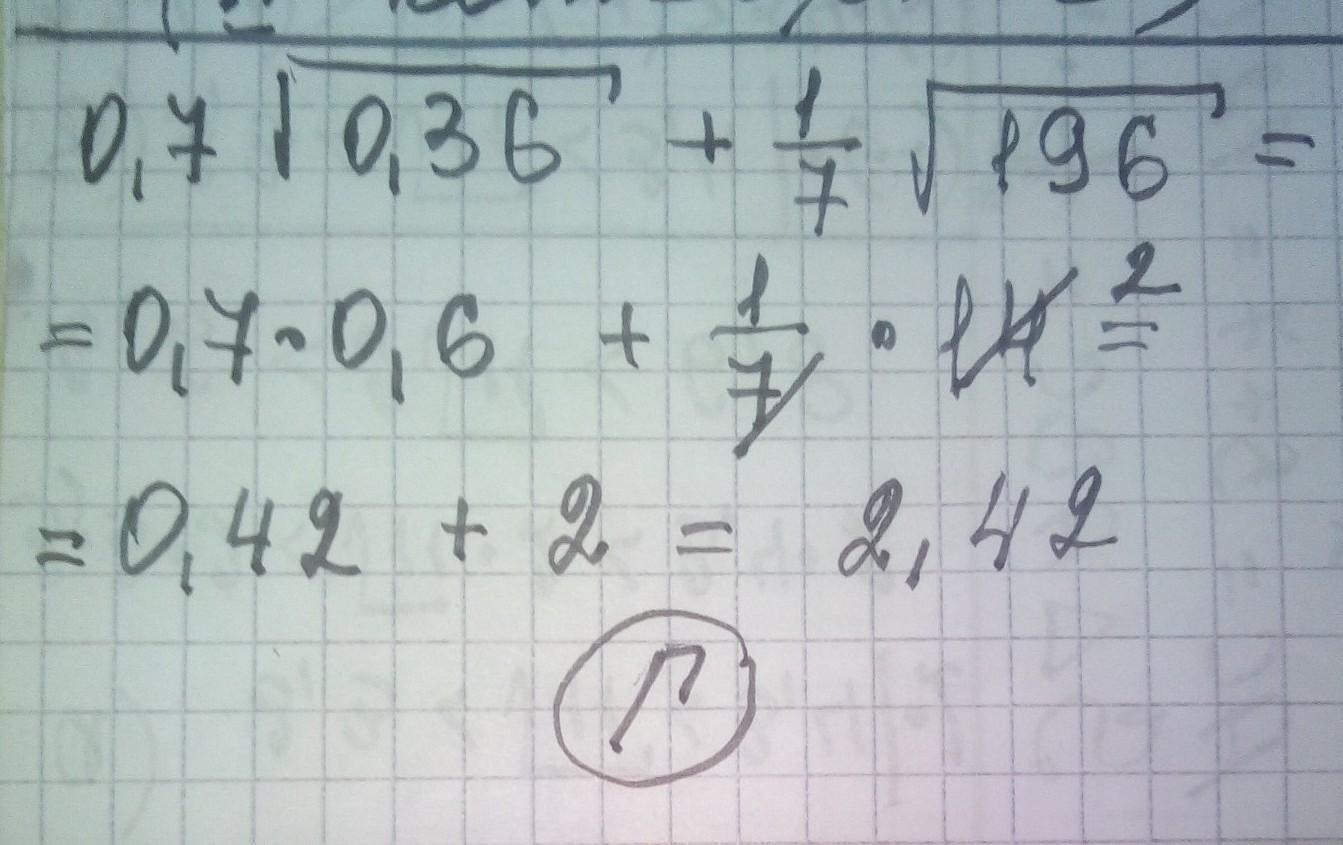 0,7 √0,36 + 1/7 √196 =
= 0,7 • 0,6 + 1/7 • 14 2 =
= 0,42 + 2 = 2,42
Г